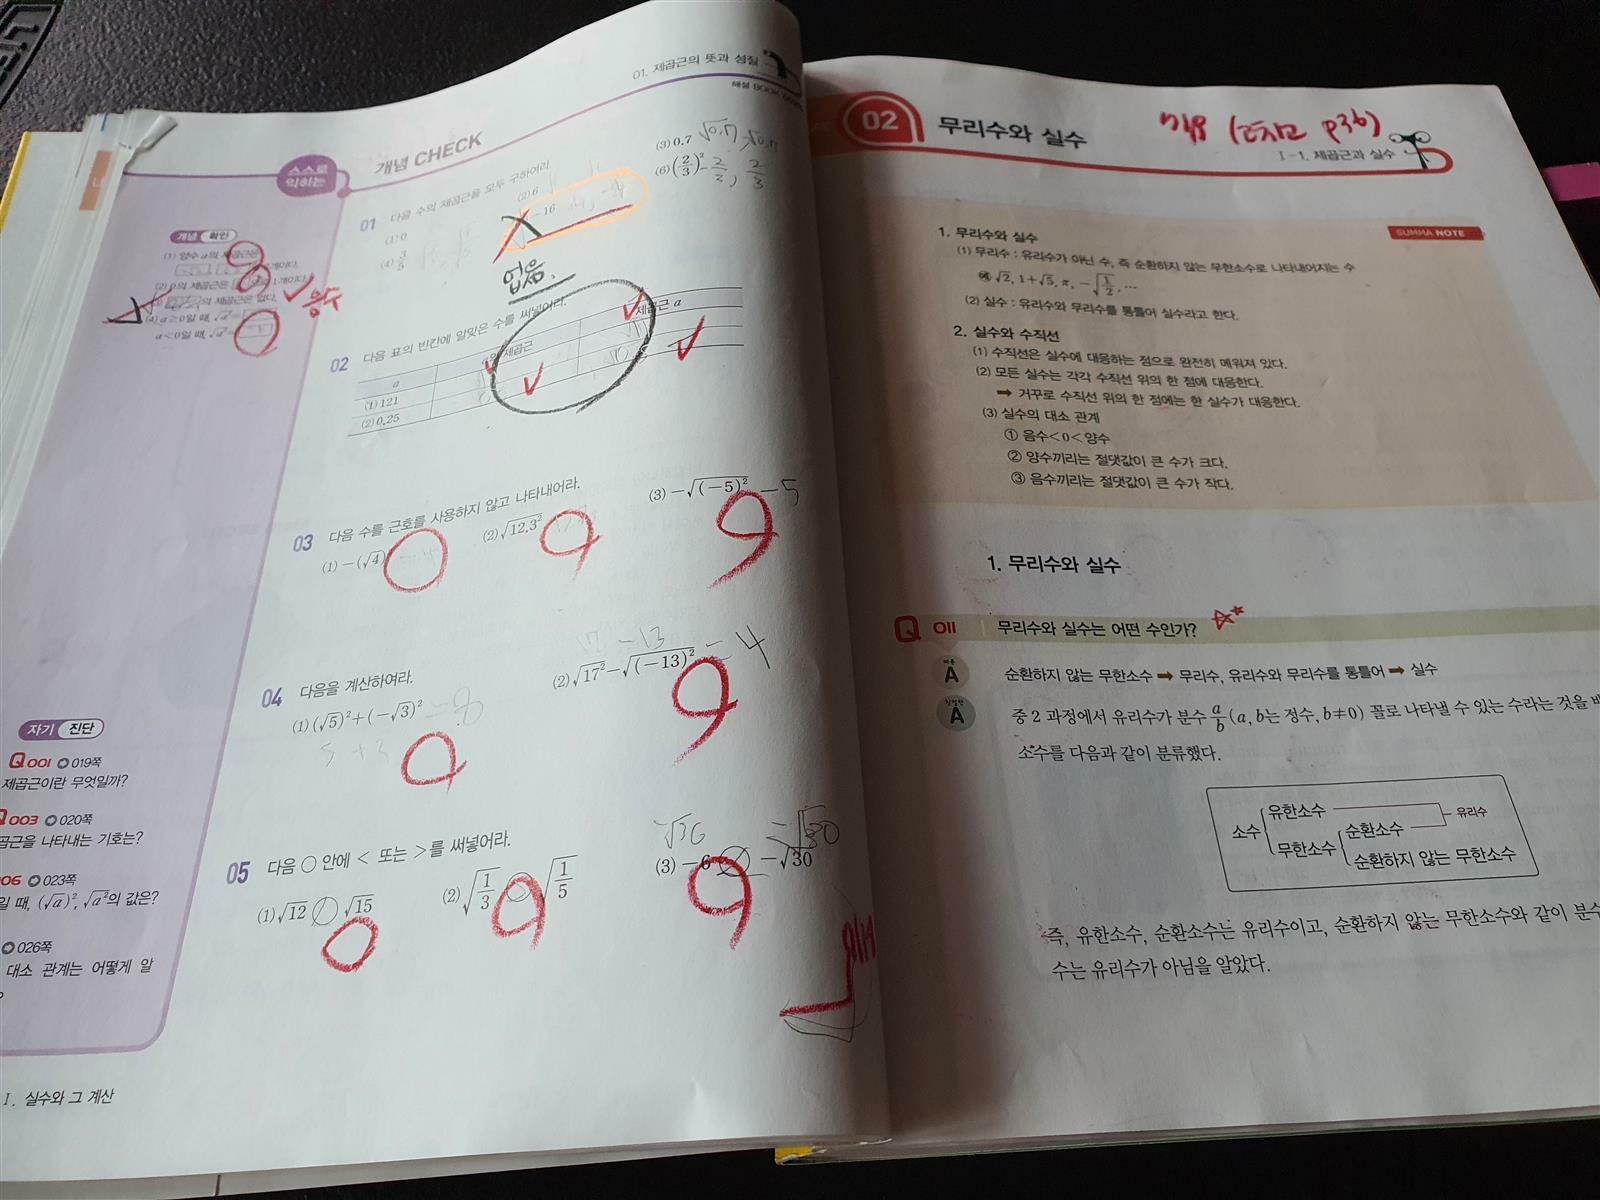 01. 제곱근의 뜻과 성질
해설 BOOK
스스로
익히는
개념 CHECK
개념 확인
(1) 양수 a의 제곱근은
개이다.
(2) 0의 제곱근은 로 1개이다.
의 제곱근은 없다.
(4) a≥0일 때, √a²=
a<0일 때, √a²=
음수
01 다음 수의 제곱근을 모두 구하여라.
(1) 0
(2) 6
(3) 0.7 √0.7, -√0.7
(4) 3/5
-16
(6) (2/3)² -2/3, 2/3
없음.
02 다음 표의 빈칸에 알맞은 수를 써넣어라.
a
a의 제곱근
제곱근 a
(1) 121
(2) 0.25
03 다음 수를 근호를 사용하지 않고 나타내어라.
(1) -(√4)
(2) √12.3²
(3) -√(-5)² -5
04 다음을 계산하여라.
(1) (√5)²+(-√3)² = 8
5 + 3
17 - 13
(2) √17²-√(-13)² = 4
05 다음 ○ 안에 < 또는 >를 써넣어라.
(1) √12 < √15
(2) √1/3 √1/5
-√36 -√30
(3) -6 < -√30
자기 진단
Q001 019쪽
제곱근이란 무엇일까?
Q003 020쪽
곱근을 나타내는 기호는?
06 023쪽
일 때, (√a)², √a²의 값은?
026쪽
대소 관계는 어떻게 알
?
I. 실수와 그 계산
02 무리수와 실수
p36)
I-1. 제곱근과 실수
SUMMA NOTE
1. 무리수와 실수
(1) 무리수 : 유리수가 아닌 수, 즉 순환하지 않는 무한소수로 나타내어지는 수
예 √2, 1+√5, π, -√1/2, …
(2) 실수 : 유리수와 무리수를 통틀어 실수라고 한다.
2. 실수와 수직선
(1) 수직선은 실수에 대응하는 점으로 완전히 메워져 있다.
(2) 모든 실수는 각각 수직선 위의 한 점에 대응한다.
➡ 거꾸로 수직선 위의 한 점에는 한 실수가 대응한다.
(3) 실수의 대소 관계
① 음수<0<양수
② 양수끼리는 절댓값이 큰 수가 크다.
③ 음수끼리는 절댓값이 큰 수가 작다.
1. 무리수와 실수
Q 011 무리수와 실수는 어떤 수인가?
빠른 A 순환하지 않는 무한소수 ➡ 무리수, 유리수와 무리수를 통틀어 ➡ 실수
친절한 A 중2 과정에서 유리수가 분수 a/b (a, b는 정수, b≠0) 꼴로 나타낼 수 있는 수라는 것을 배
소수를 다음과 같이 분류했다.
소수
유한소수
유리수
무한소수
순환소수
순환하지 않는 무한소수
즉, 유한소수, 순환소수는 유리수이고, 순환하지 않는 무한소수와 같이 분수
수는 유리수가 아님을 알았다.